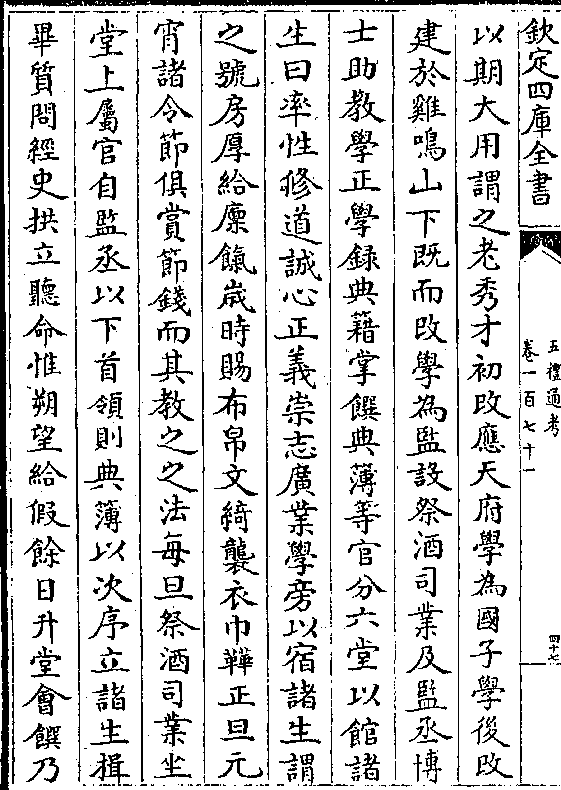 欽定四庫全書
五禮通考
卷一百七十一
四十七
以期大用謂之老秀才初改應天府學為國子學後改
建於雞鳴山下既而改學為監設祭酒司業及監丞博
士助教學正學録典籍掌饌典簿等官分六堂以館諸
生曰率性修道誠心正義崇志廣業學旁以宿諸生謂
之號房厚給廪餼歲時賜布帛文綺襲衣巾鞾正旦元
宵諸令節俱賞節錢而其教之之法每旦祭酒司業坐
堂上屬官自監丞以下首領則典簿以次序立諸生揖
畢質問經史拱立聽命惟朔望給假餘日升堂會饌乃